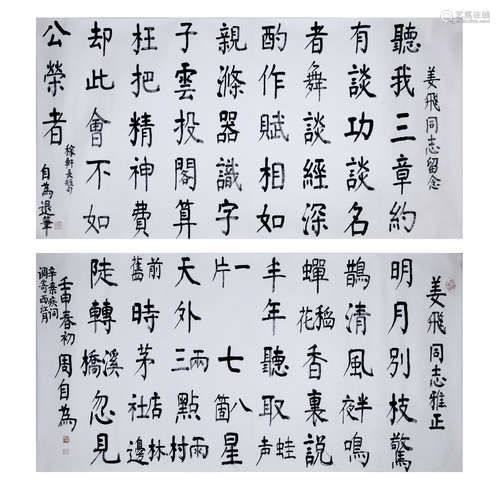 姜飛同志留念
聽我三章約
有談功談名
者舞談經深
酌作賦相如
親滌器識字
子雲投閣算
枉把精神費
却此會不如
公榮者
稼軒長短句
自為退筆
姜飛同志雅正
明月別枝驚
鵲清風半夜鳴
蟬稻花香裏說
丰年聽取蛙声
一片七八箇星
天外兩三點雨村
前舊時茅店社林邊
陡轉溪橋忽見
辛棄疾词
调寄西江月
壬申春初周自為